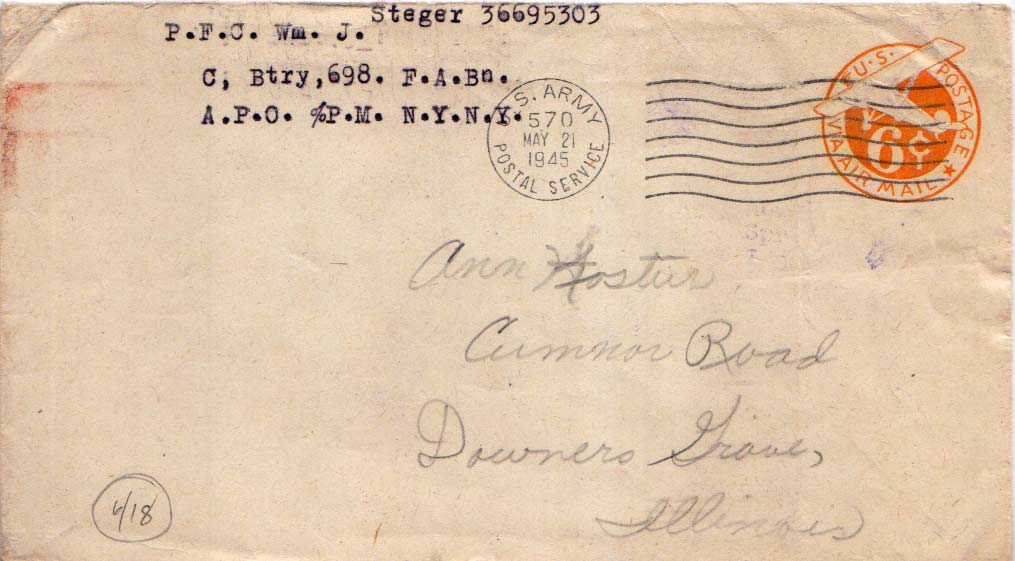 Steger 36695303
P.F.C. Wm. J.
C, Btry,698. F.A.Bn.
A.P.O. %P.M. N.Y.N.Y.
U.S. ARMY
570
MAY 21
1945
POSTAL SERVICE
U.S. POSTAGE
6¢
VIA AIR MAIL
Ann
Cumnor Road
Downers Grove,
Illinois
4/18